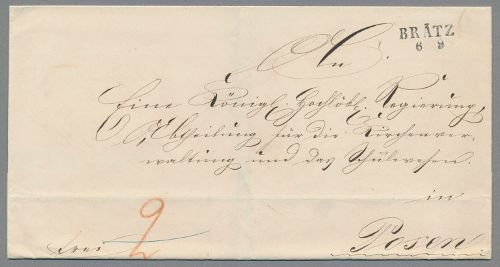 BRÄTZ
6 9
An
Eine Königl. Hochlöbl. Regierung,
Abtheilung für die Kirchenver-
waltung und das Schulwesen.
in
Posen
frei